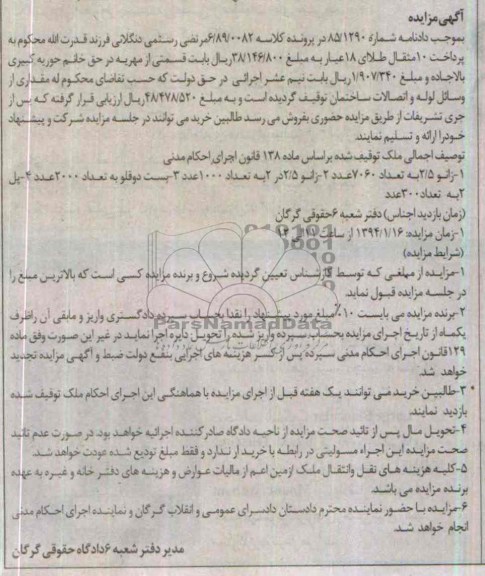 آگهی مزایده
بموجب دادنامه شماره ۸۵/۱۲۹۰ در پرونده کلاسه ۶/۸۹/۰۰۸۲ مرتضی رستمی دنگلانی فرزند قدرت الله محکوم به
پرداخت ۱۰مثقال طلای ۱۸عیار به مبلغ ۳۸/۱۴۶/۸۰۰ریال بابت قسمتی از مهریه در حق خانم حوریه کبیری
بالاجاده و مبلغ ۱/۹۰۷/۳۴۰ریال بابت نیم عشر اجرائی در حق دولت که حسب تقاضای محکوم له مقداری از
وسائل لوله و اتصالات ساختمان توقیف گردیده است و به مبلغ ۴۸/۴۷۸/۵۲۰ریال ارزیابی قرار گرفته که پس از
جری تشریفات از طریق مزایده حضوری بفروش می رسد طالبین خرید می توانند در جلسه مزایده شرکت و پیشنهاد
خود را ارائه و تسلیم نمایند.
توصیف اجمالی ملک توقیف شده براساس ماده ۱۳۸ قانون اجرای احکام مدنی
۱-زانو ۲/۵به تعداد ۷۰۶۰عدد ۲-زانو ۲/۵در ۲به تعداد ۱۰۰۰عدد ۳-بست دوقلو به تعداد ۲۰۰۰عدد ۴-پل
۲به تعداد۳۰۰عدد
(زمان بازدید اجناس) دفتر شعبه ۶حقوقی گرگان
۱-زمان مزایده: ۱۳۹۴/۱/۱۶ از ساعت ۱۱ الی ۱۲
(شرایط مزایده)
۱-مزایده از مبلغی که توسط کارشناس تعیین گردیده شروع و برنده مزایده کسی است که بالاترین مبلغ را
در جلسه مزایده قبول نماید.
۲-برنده مزایده می بایست ۱۰٪مبلغ مورد پیشنهاد را نقدا بحساب سپرده دادگستری واریز و مابقی آن را ظرف
یکماه از تاریخ اجرای مزایده بحساب سپرده واریز شده را تحویل دایره اجرا نماید در غیر این صورت وفق ماده
۱۲۹قانون اجرای احکام مدنی سپرده پس از کسر هزینه های اجرایی بنفع دولت ضبط و آگهی مزایده تجدید
خواهد شد.
۳-طالبین خرید می توانند یک هفته قبل از اجرای مزایده با هماهنگی این اجرای احکام ملک توقیف شده
بازدید نمایند.
۴-تحویل مال پس از تائید صحت مزایده از ناحیه دادگاه صادر کننده اجرائیه خواهد بود. در صورت عدم تائید
صحت مزایده این اجراء مسولیتی در رابطه با خریدار ندارد و فقط مبلغ تودیع شده عودت خواهد شد.
۵-کلیه هزینه های نقل وانتقال ملک ازمین اعم از مالیات عوارض و هزینه های دفتر خانه و غیره به عهده
برنده مزایده می باشد.
۶-مزایده با حضور نماینده محترم دادستان دادسرای عمومی و انقلاب گرگان و نماینده اجرای احکام مدنی
انجام خواهد شد.
مدیر دفتر شعبه ۶دادگاه حقوقی گرگان
ParsNamadData